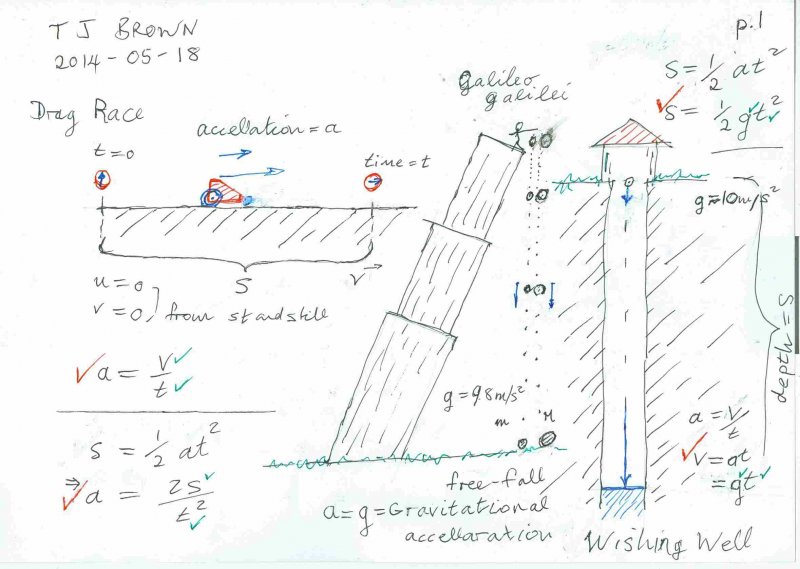 T J BROWN
2014-05-18
p.1
Drag Race
t=0
accellation = a
time = t
S
v
u = 0
v = 0, } from standstill
✓ a = v/t ✓✓
s = 1/2 at²
⇒ ✓ a = 2s/t² ✓✓
Galileo
galilei
g = 9.8 m/s²
m M
free-fall
a = g = Gravitational
accellaration
s = 1/2 at²
✓ s = 1/2 gt² ✓✓
g ≈ 10 m/s²
depth = s
a = v/t
✓ v = at
= gt ✓✓
Wishing Well